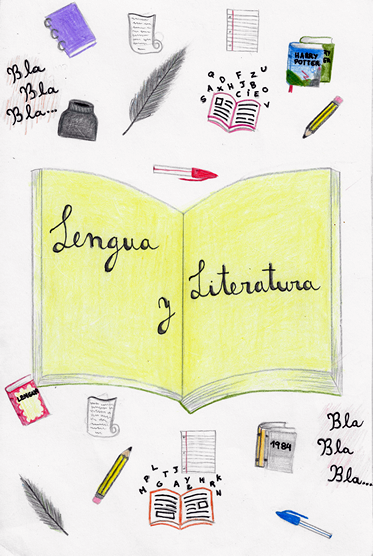 Bla
Bla
Bla...
HARRY
POTTER
Lengua
y
Literatura
LENGUA
1984
Bla
Bla
Bla...